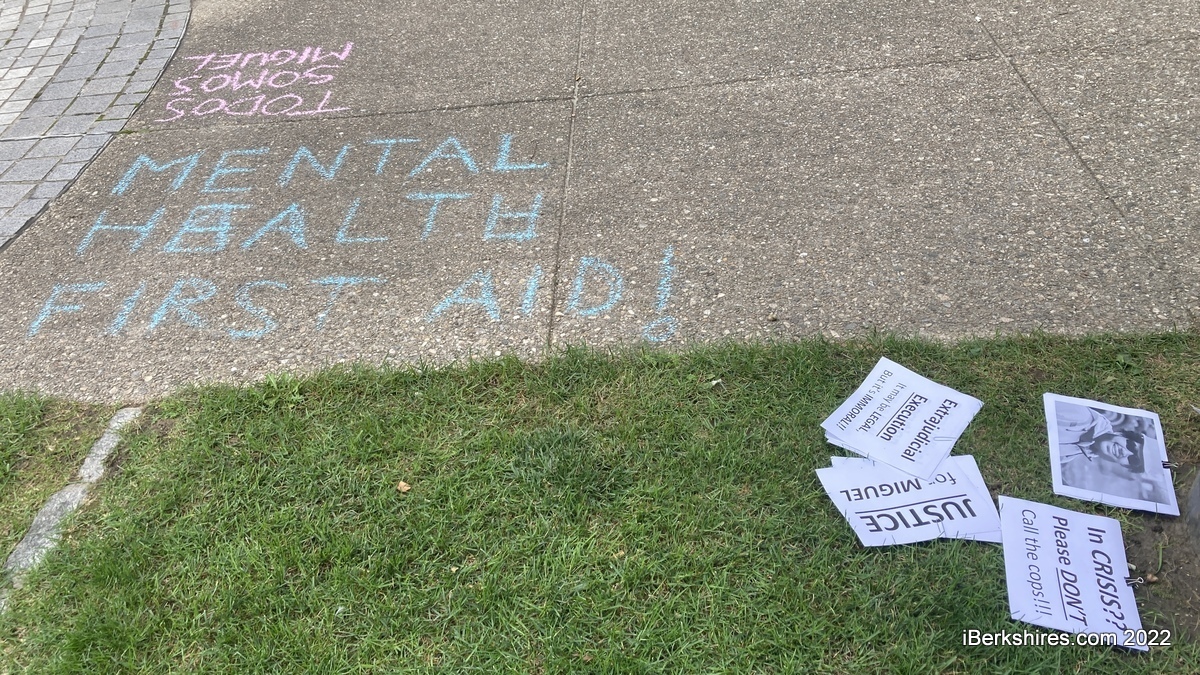 TODOS
SOMOS
MIGUEL
MENTAL
HEALTH
FIRST AID!
Extrajudicial
Execution
It may be LEGAL,
But it's IMMORAL!!
JUSTICE
for MIGUEL
In CRISIS??
Please DON'T
Call the cops!!!
iBerkshires.com 2022